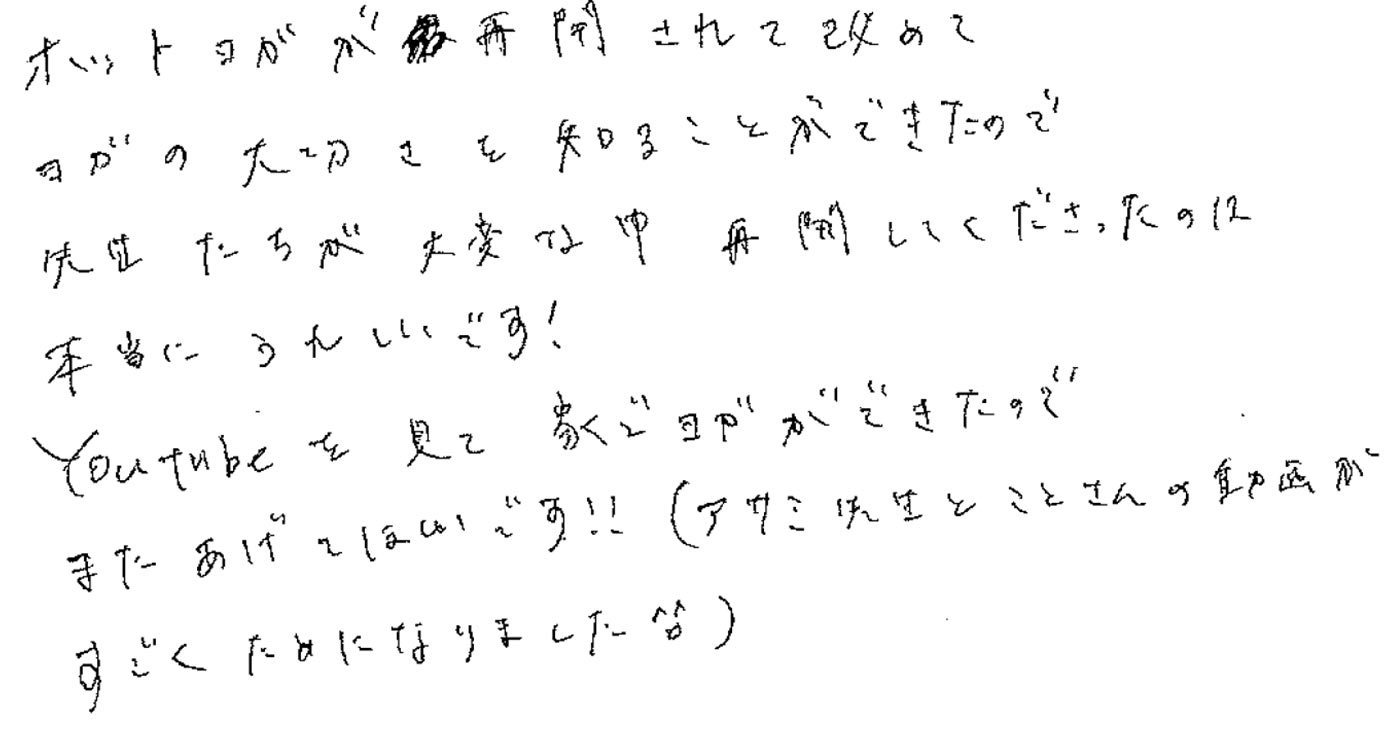 ホットヨガが再開されて改めて
ヨガの大切さを知ることができたので
先生たちが大変な中 再開してくださったのは
本当にうれしいです!
Youtubeを見て家でヨガができたので
またあげてほしいです!!(アサミ先生とことさんの動画が
すごくためになりました^^)